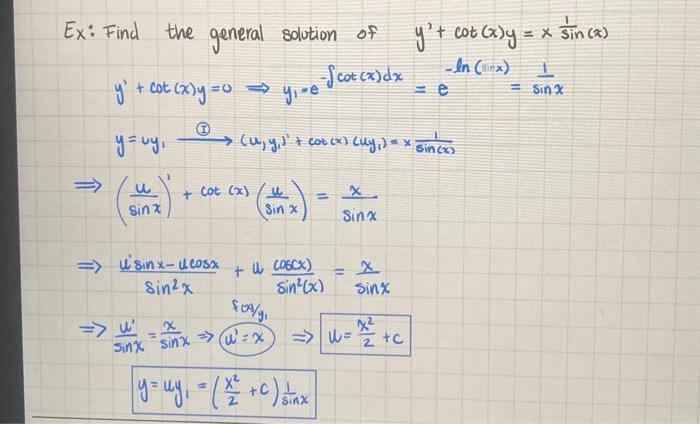 Ex: Find the general solution of y' + cot(x)y = x 1/sin(x)
y' + cot(x)y = 0 ⇒ y₁ = e^(-∫cot(x)dx) = e^(-ln(sinx)) = 1/sin x
y = uy₁ —Ⓘ→ (u, y₁)' + cot(x) (uy₁) = x 1/sin(x)
⇒ (u/sin x)' + cot (x) (u/sin x) = x/sin x
⇒ (u'sin x - u cosx)/sin² x + u cos(x)/sin²(x) = x/sin x
f(x)/y₁
⇒ u'/sin x = x/sin x ⇒ u' = x ⇒ u = x²/2 + c
y = uy₁ = (x²/2 + c) 1/sin x